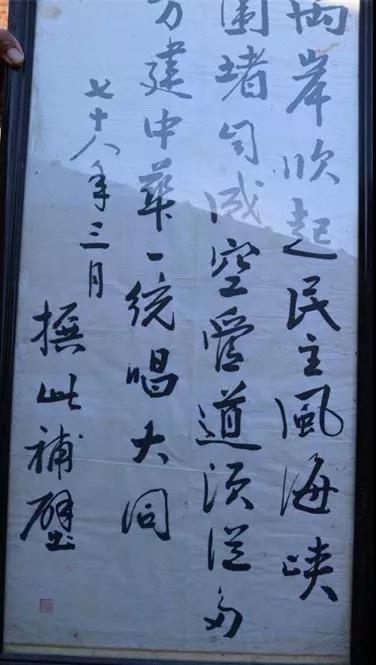 兩岸吹起民主風海峽
圍堵自成空管道須從多
方建中華一統唱大同
七十八年三月
撰此補壁